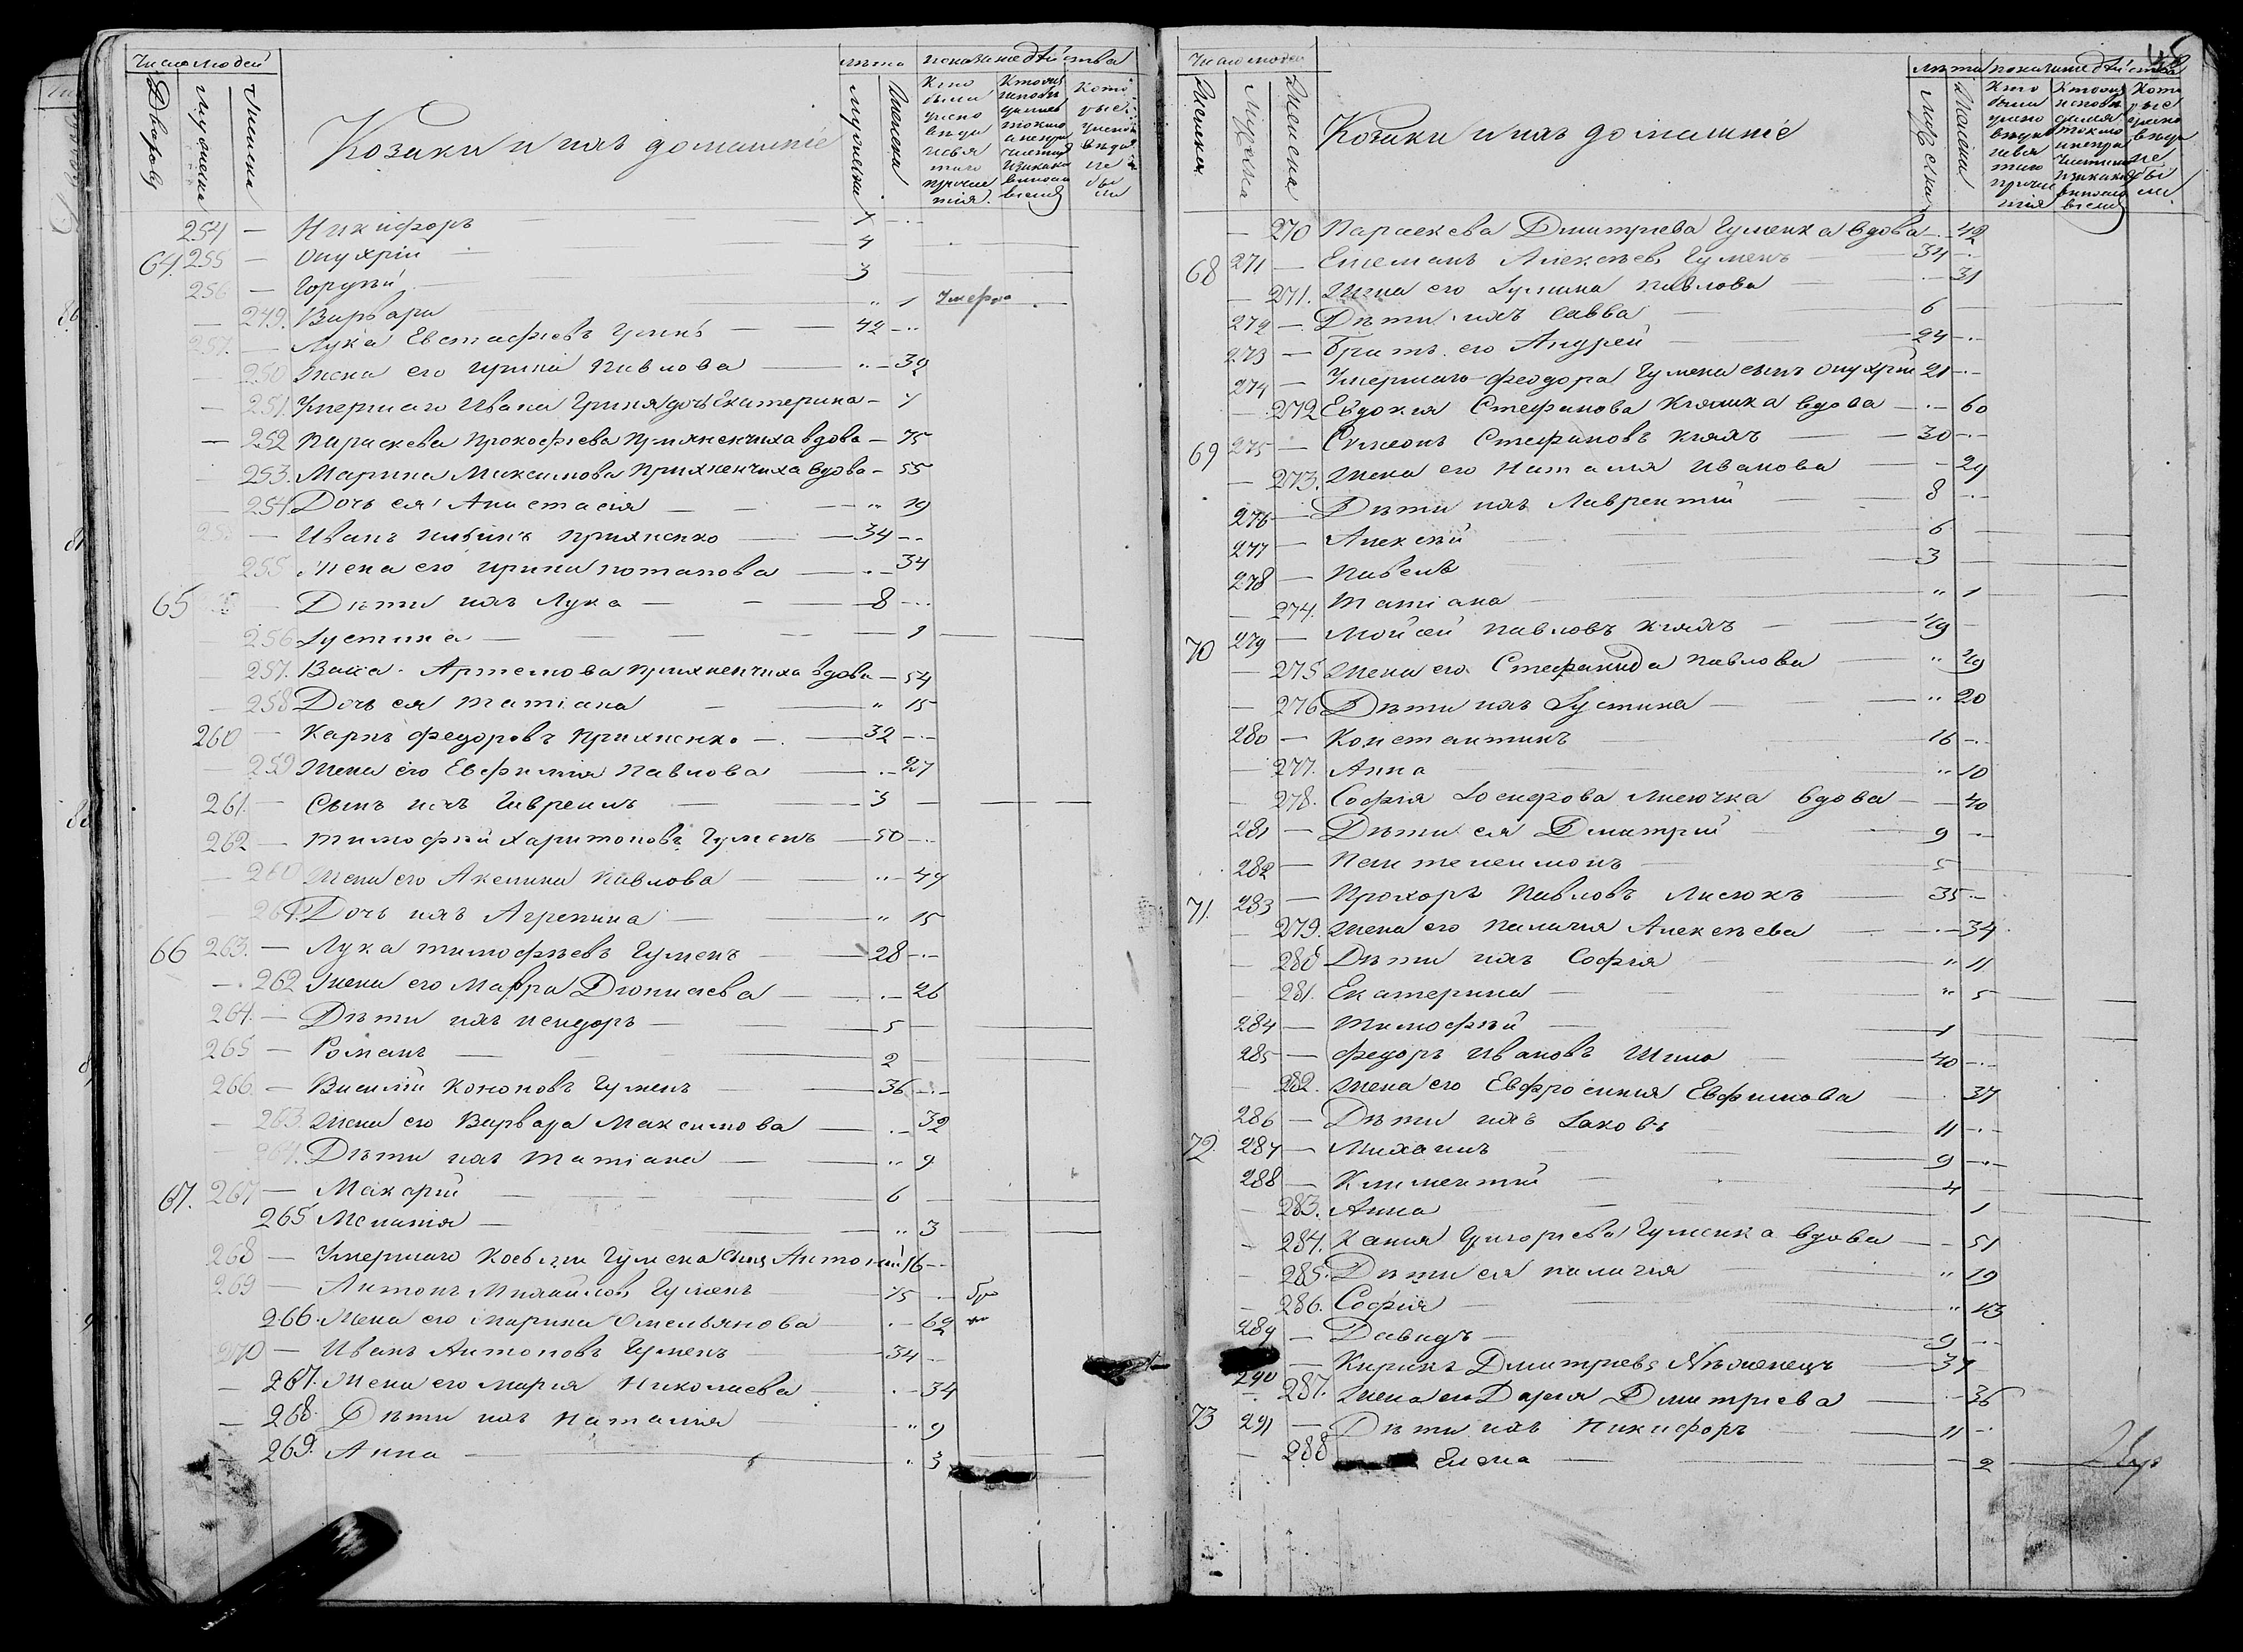 Число людей
лѣта показаніе дѣйства
Дворовъ
Мужеска
Женска
Козаки и ихъ домашніе
Мужеска
Женска
254 — Никифоръ — 7
64. 255 — Онуфрій — 4
256 — Гордѣй — 3
— 249. Варвара — " 1 Умерла
257. — Лука Евстафіевъ Гуменъ — 42
— 250 Жена его Ирина Павлова — 39
— 251. Умершаго Ивана дочь Екатерина — 7
— 252 Параскева Прокофіева Прихненчиха вдова — 75
253. Марина Максимова Прихненчиха вдова — 55
— 254 Дочь ея Анастасія — " 19
258 — Иванъ Прихненко — 34
255. Жена его Ирина Потапова — 34
65 — Дѣти ихъ Лука — 8
256 Іустина — 1
257. Васса Артемова Прихненчиха вдова — 54
— 258 Дочь ея Татіана — " 15
260 — Карпъ Федоровъ Прихненко — 32
— 259 Жена его Евфимія Павлова — 27
261. — Сынъ ихъ Гавріилъ — 3
262 — Тимофѣй Харитоновъ Гуменъ — 50
— 260 Жена его Акелина Павлова — " 49
— 261. Дочь ихъ Агрепина — " 15
66 263. — Лука Тимофѣевъ Гуменъ — 28
— 262 Жена его Мавра Діонисіева — 26
264. — Дѣти ихъ Исидоръ — 5
265 — Романъ — 2
266. — Василій Кононовъ Гуменъ — 36
— 263. Жена его Варвара Максимова — 32
— 264. Дѣти ихъ Татіана — " 9
67. 267 — Макарій — 6
265 Меланія — " 3
268 — Умершаго Космы Гумена сынъ Антоній 16
269 — Антонъ Михайловъ Гуменъ — 75
266. Жена его Марина Омельянова — 62
270 — Иванъ Антоновъ Гуменъ — 34
— 267. Жена его Марія Николаева — 34
— 268. Дѣти ихъ Наталія — " 9
— 269. Анна — " 3
Число людей
лѣта показаніе дѣйства
Мужеска
Женска
Козаки и ихъ домашніе
Мужеска
Женска
— 270 Параскева Дмитріева Гуменка вдова — 42
68 271 — Алексѣевъ Гуменъ — 34
— 271. Жена его Іулиана Павлова — 31
272 — Дѣти ихъ Савва — 6
273 — Братъ его Андрей — 24
274 — Умершаго Феодора Гумена сынъ Онуфрій 21
— 272 Евдокія Стефанова Кияшка вдова — 60
69 275 — Симеонъ Стефановъ Кияхъ — 30
— 273. Жена его Наталія Иванова — 29
276 — Дѣти ихъ Лаврентій — 8
277 — Алексѣй — 6
278 — Павелъ — 3
— 274. Татіана — " 1
70 279 — Мойсей Павловъ Кияхъ — 49
— 275 Жена его Стефанида Павлова — " 49
— 276 Дѣти ихъ Іустина — " 20
280 — Константинъ — 16
— 277. Анна — " 10
— 278. Софія Іосифова Лисючка вдова — 40
281 — Дѣти ея Дмитрій — 9
282 — Пантелеимонъ — 5
71. 283 — Прохоръ Павловъ Лисюкъ — 35
— 279. Жена его Палагія Алексѣева — 34
— 280 Дѣти ихъ Софія — " 11
— 281. Екатерина — " 5
284 — Тимофѣй — 1
285 — Федоръ Ивановъ Шило — 40
— 282. Жена его Евфросинія Евфимова — 37
286 — Дѣти ихъ Іаковъ — 11
72. 287 — Михаилъ — 9
288 — Климентій — 4
— 283. Анна — 1
— 284. Ксенія Григоріева Гуменка вдова — 51
— 285. Дѣти ея Палагія — " 19
— 286. Софія — " 13
289 — Давидъ — 9
290 — Кирикъ Дмитріевъ Нѣженецъ — 37
— 287. Жена его Дарія Дмитріева — 36
73 291 — Дѣти ихъ Никифоръ — 11
— 288 Елена — 2